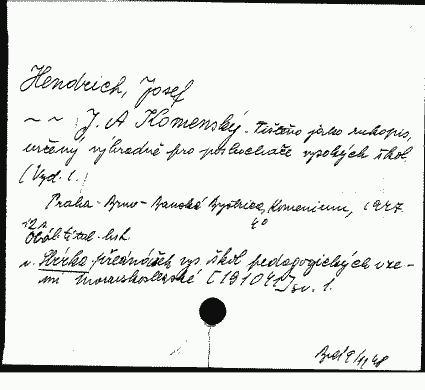 Hendrich, Josef
~ ~ J. A Komenský. Tištěno jako rukopis,
určeny výhradně pro posluchače vysokých škol.
(Vyd. 1.)
Praha - Brno - Banská Bystrica, Komenium, 1947.
12A 4°
Obál. tit. l.
v. Sbírka přednášek vys. škol pedagogických v ze-
mi moravskoslezské [19104] sv. 1.